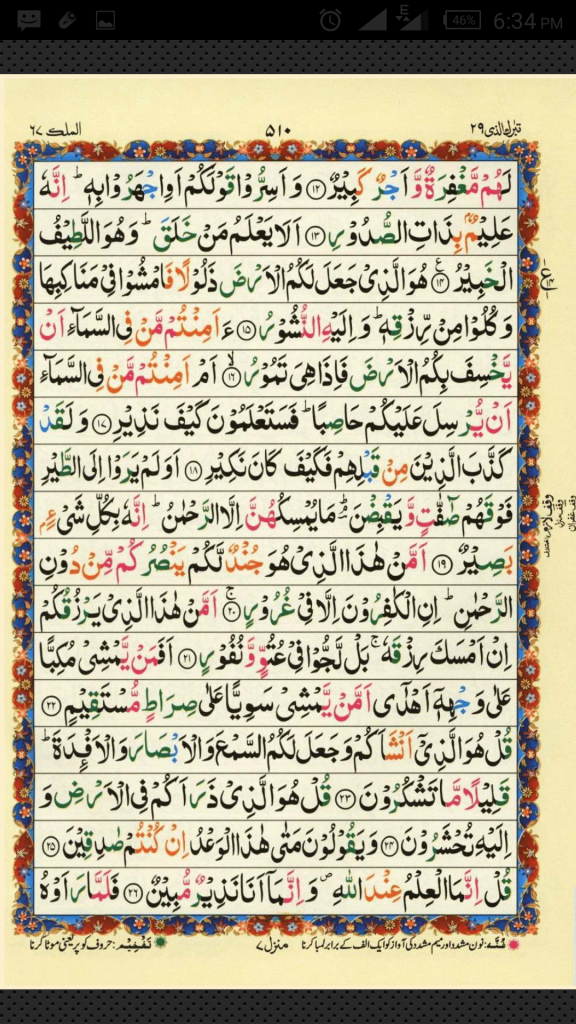 46% 6:34 PM
الملك ٦٧ ۵۱۰ تبٰرك الذی ٢٩
لَهُمۡ مَّغۡفِرَةٌ وَّاَجۡرٌ كَبِيۡرٌ ﴿۱۲﴾ وَاَسِرُّوۡا قَوۡلَكُمۡ اَوِ اجۡهَرُوۡا بِهٖؕ اِنَّهٗ
عَلِيۡمٌۢ بِذَاتِ الصُّدُوۡرِ ﴿۱۳﴾ اَلَا يَعۡلَمُ مَنۡ خَلَقَؕ وَهُوَ اللَّطِيۡفُ
الۡخَبِيۡرُ ﴿۱۴﴾ هُوَ الَّذِىۡ جَعَلَ لَكُمُ الۡاَرۡضَ ذَلُوۡلًا فَامۡشُوۡا فِىۡ مَنَاكِبِهَا
وَكُلُوۡا مِنۡ رِّزۡقِهٖؕ وَاِلَيۡهِ النُّشُوۡرُ ﴿۱۵﴾ ءَاَمِنۡتُمۡ مَّنۡ فِى السَّمَآءِ اَنۡ
يَّخۡسِفَ بِكُمُ الۡاَرۡضَ فَاِذَا هِىَ تَمُوۡرُۙ ﴿۱۶﴾ اَمۡ اَمِنۡتُمۡ مَّنۡ فِى السَّمَآءِ
اَنۡ يُّرۡسِلَ عَلَيۡكُمۡ حَاصِبًاؕ فَسَتَعۡلَمُوۡنَ كَيۡفَ نَذِيۡرِ ﴿۱۷﴾ وَلَقَدۡ
كَذَّبَ الَّذِيۡنَ مِنۡ قَبۡلِهِمۡ فَكَيۡفَ كَانَ نَكِيۡرِ ﴿۱۸﴾ اَوَلَمۡ يَرَوۡا اِلَى الطَّيۡرِ
فَوۡقَهُمۡ صٰٓفّٰتٍ وَّيَقۡبِضۡنَؔؕ مَا يُمۡسِكُهُنَّ اِلَّا الرَّحۡمٰنُؕ اِنَّهٗ بِكُلِّ شَىۡءٍۢ
بَصِيۡرٌ ﴿۱۹﴾ اَمَّنۡ هٰذَا الَّذِىۡ هُوَ جُنۡدٌ لَّكُمۡ يَنۡصُرُكُمۡ مِّنۡ دُوۡنِ
الرَّحۡمٰنِؕ اِنِ الۡكٰفِرُوۡنَ اِلَّا فِىۡ غُرُوۡرٍۚ ﴿۲۰﴾ اَمَّنۡ هٰذَا الَّذِىۡ يَرۡزُقُكُمۡ
اِنۡ اَمۡسَكَ رِزۡقَهٗۚ بَلۡ لَّجُّوۡا فِىۡ عُتُوٍّ وَّنُفُوۡرٍ ﴿۲۱﴾ اَفَمَنۡ يَّمۡشِىۡ مُكِبًّا
عَلٰى وَجۡهِهٖۤ اَهۡدٰٓى اَمَّنۡ يَّمۡشِىۡ سَوِيًّا عَلٰى صِرَاطٍ مُّسۡتَقِيۡمٍ ﴿۲۲﴾
قُلۡ هُوَ الَّذِىۡۤ اَنۡشَاَكُمۡ وَجَعَلَ لَكُمُ السَّمۡعَ وَالۡاَبۡصَارَ وَالۡاَفۡـِٕدَةَؕ
قَلِيۡلًا مَّا تَشۡكُرُوۡنَ ﴿۲۳﴾ قُلۡ هُوَ الَّذِىۡ ذَرَاَكُمۡ فِى الۡاَرۡضِ وَ
اِلَيۡهِ تُحۡشَرُوۡنَ ﴿۲۴﴾ وَيَقُوۡلُوۡنَ مَتٰى هٰذَا الۡوَعۡدُ اِنۡ كُنۡتُمۡ صٰدِقِيۡنَ ﴿۲۵﴾
قُلۡ اِنَّمَا الۡعِلۡمُ عِنۡدَ اللّٰهِ وَاِنَّمَاۤ اَنَا نَذِيۡرٌ مُّبِيۡنٌ ﴿۲۶﴾ فَلَمَّا رَاَوۡهُ
غُنَّہ: نون مشدد اور میم مشدد کی آواز کو ایک الف کے برابر لمبا کرنا منزل ۷ تَفْخِیْم: حروف کو پر یعنی موٹا کرنا